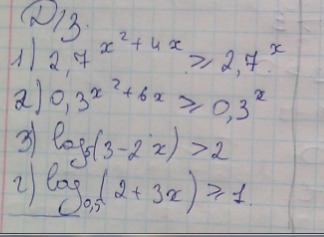 Д/З.
1) 2,7^{x²+4x} ≥ 2,7^{x}
2) 0,3^{x²+6x} ≥ 0,3^{x}
3) log₅(3-2x) > 2
г) log_{0,5}(2+3x) ≥ 1.